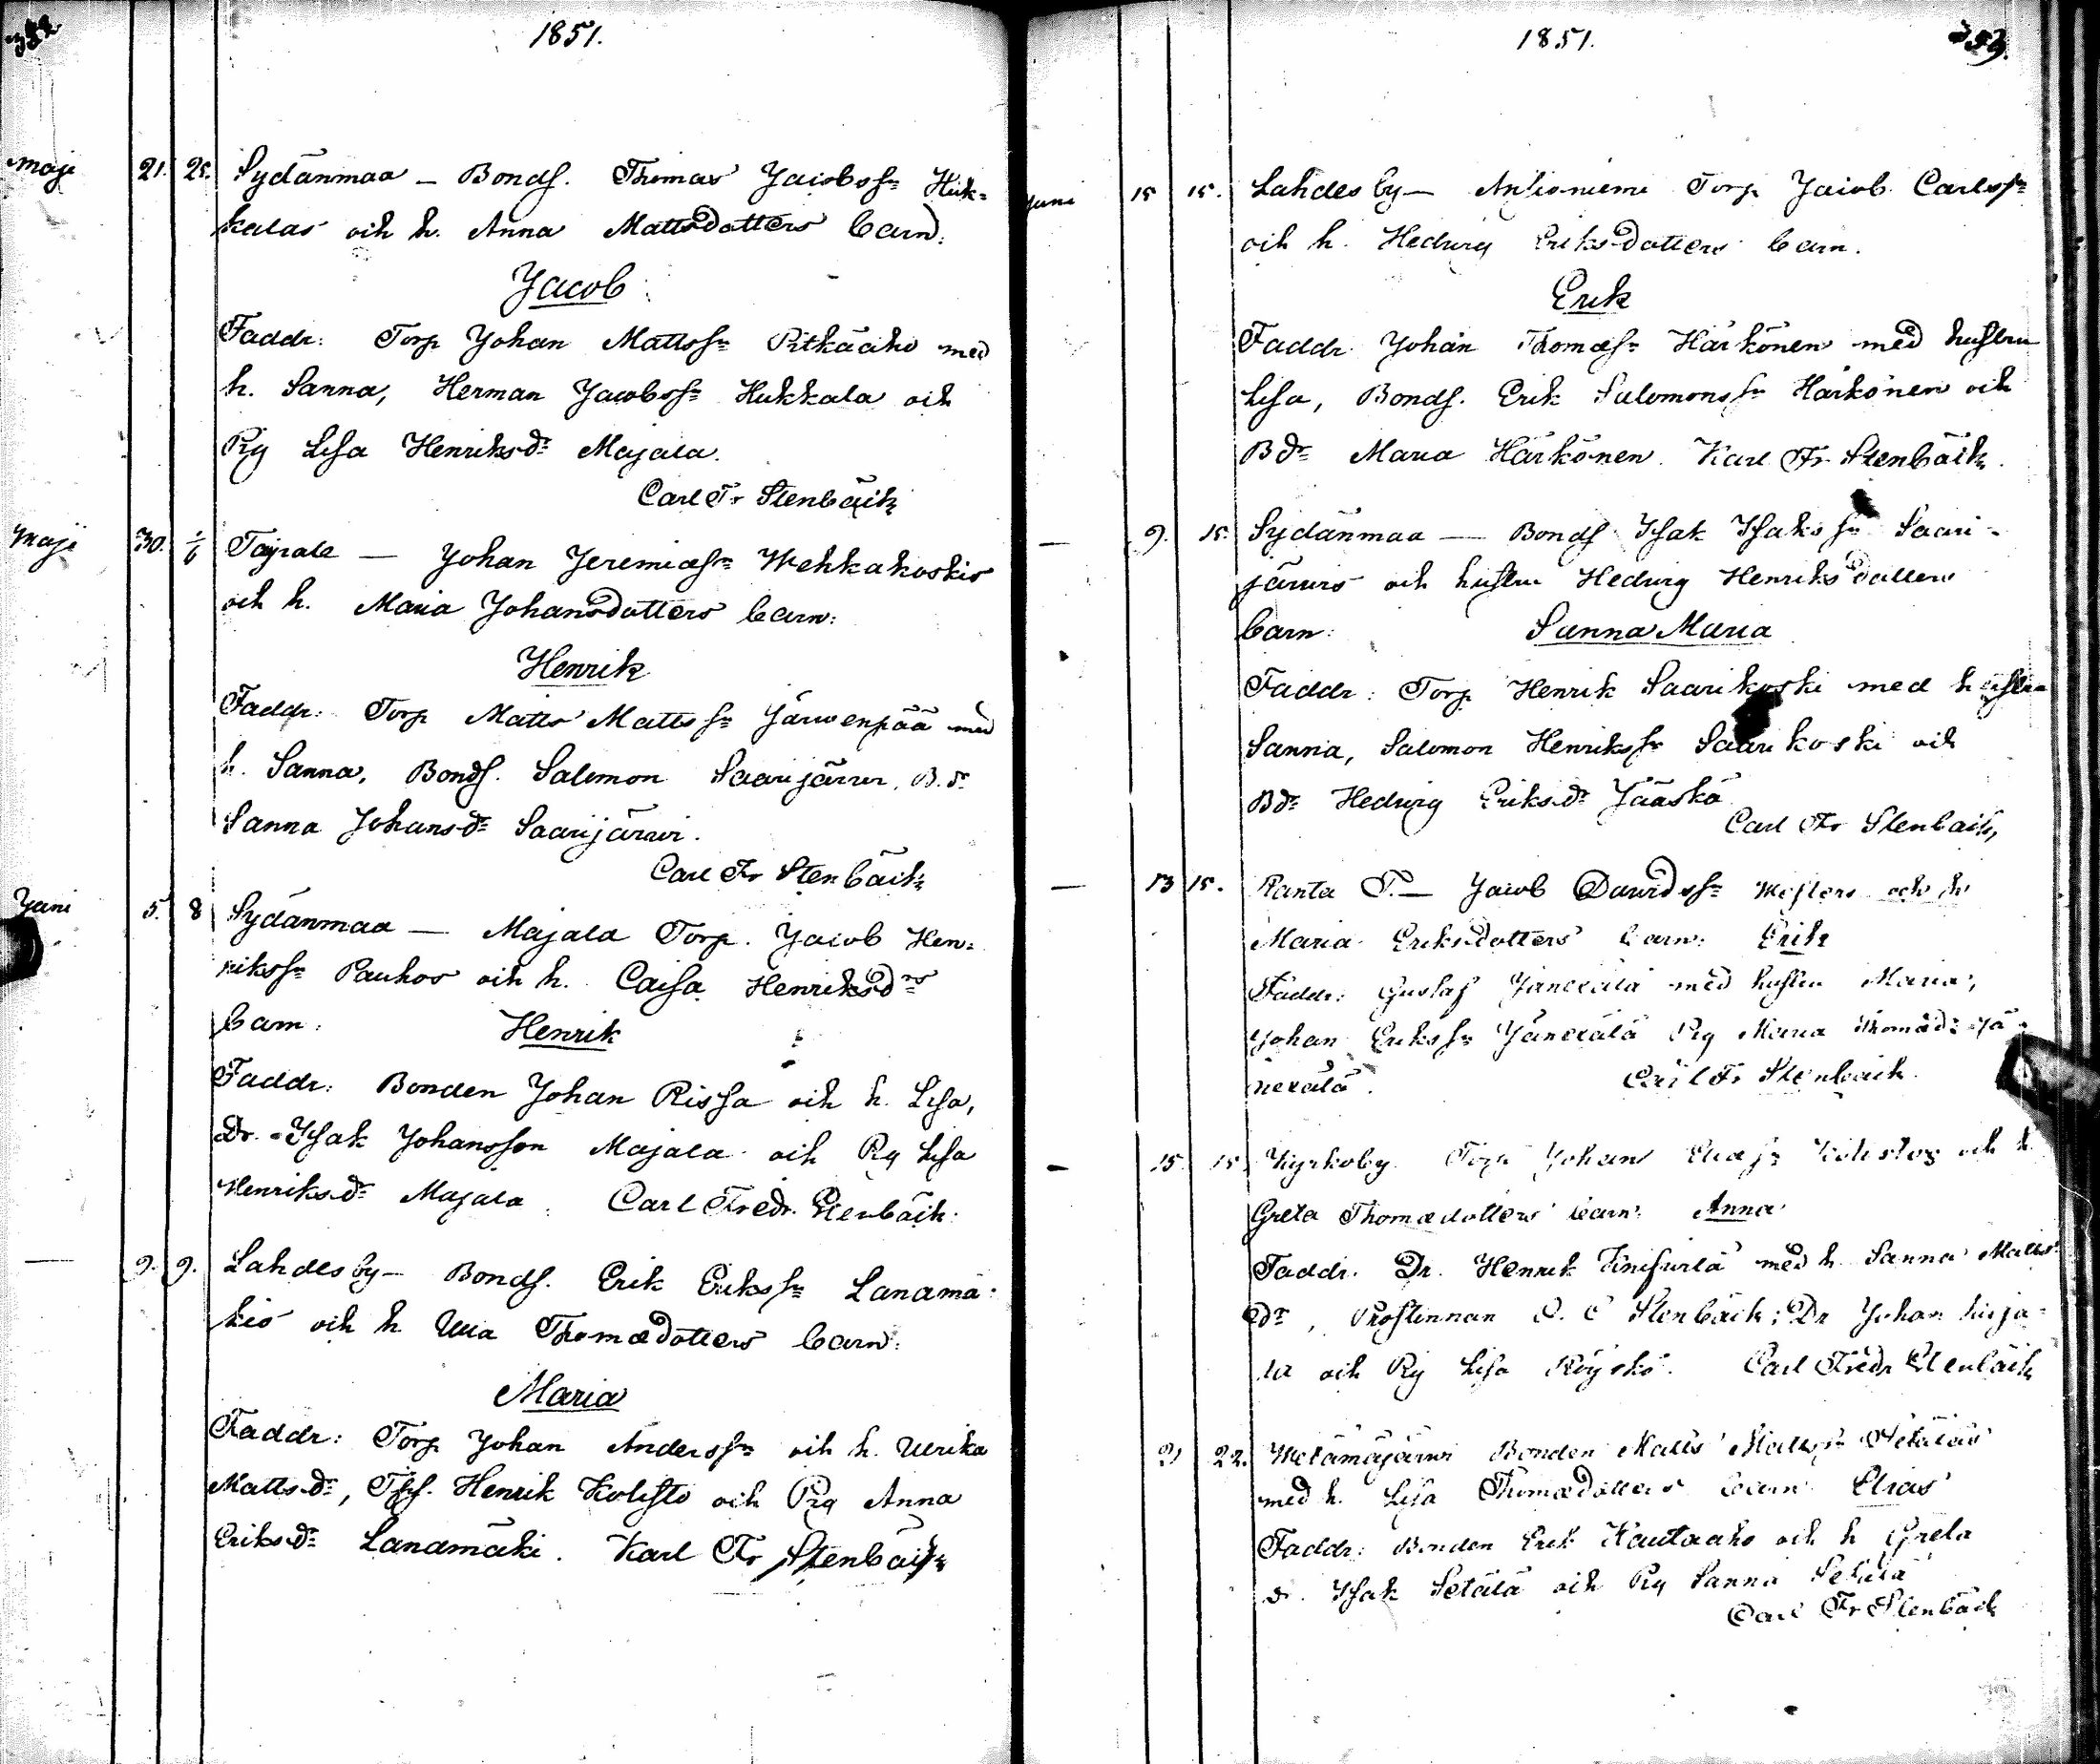 1851.
Maji 21. 25. Sydänmaa – Bonds. Thomas Jacobss:n Huk-
kalas och h. Anna Mattsdotters barn:
Jacob
Faddr: Torp Johan Mattss:n Pitkäaho med
h. Sanna, Herman Jacobss:n Hukkala och
Pig Lisa Henriksd:r Majala.
Carl Fr Stenbäck
Maji 30. 1/6 Johan Jeremiæs:n Wehkakoskis
och h. Maria Johansdotters barn:
Henrik
Faddr: Torp Matts Mattss:n Järwenpää med
h. Sanna, Bonds. Salomon Saarijärwi, B.d:r
Sanna Johansd:r Saarijärwi.
Carl Fr Stenbäck
Juni 5. 8 Sydänmaa – Majala Torp. Jacob Hen-
rikss:n Pauhos och h. Caisa Henriksd:rs
barn: Henrik
Faddr: Bonden Johan Rissa och h. Lisa,
Dr. Isak Johansson Majala och Pig Lisa
Henriksd:r Majala. Carl Fredr. Stenbäck.
— 9. 9. Lahdes by – Bonds. Erik Erikss:n Lanamä-
kis och h. Ulla Thomædotters barn:
Maria
Faddr: Torp Johan Anderss:n och h. Ulrika
Mattsd:r, Henrik Kolisto och Pig Anna
Eriksd:r Lanamäki. Karl Fr Stenbäck
1851.
Juni 15 15. Lahdes by – Torp Jacob Carlss:n
och h. Hedwig Eriksdotters barn.
Erik
Faddr. Johan Thomæs:n Härkönen med hustru
Lisa, Bonds. Erik Salomonss:n Härkönen och
Bd:r Maria Härkönen. Karl Fr Stenbäck.
— 9. 15. Sydänmaa — Bonds Isak Isakss:n Saari-
järwis och hustru Hedwig Henriksdotters
barn: Sanna Maria
Faddr: Torp Henrik Saarikoski med hustru
Sanna, Salomon Henrikss:n Saarikoski och
Bd:r Hedwig Eriksd:r Jääskä
Carl Fr Stenbäck,
— 13 15. Ranta T. – Jacob Dawidss:n och h
Maria Eriksdotters barn: Erik
Faddr: Gustaf Jänexälä med hustru Maria,
Johan Erikss:n Jänexälä Pig Maria Thomæd:r Jä-
nexälä. Carl Fr Stenbäck.
— 15. 15. Kyrkoby. Torp Johan Kolistos och h.
Greta Thomædotters barn: Anna
Faddr. Dr. Henrik med h Sanna Matts
d:r, Prostinnan Stenbäck; Dr Johan
och Pig Lisa Röyskö. Carl Fredr Stenbäck
21 22. Metämäjärwi Bonden Matts Mattss:n Setäläs
med h. Lisa Thomædotters barn Elias
Faddr: Bonden Erik Hautaaho och h Greta
d. Isak Setälä och Pig Sanna Setälä
Carl Fr Stenbäck